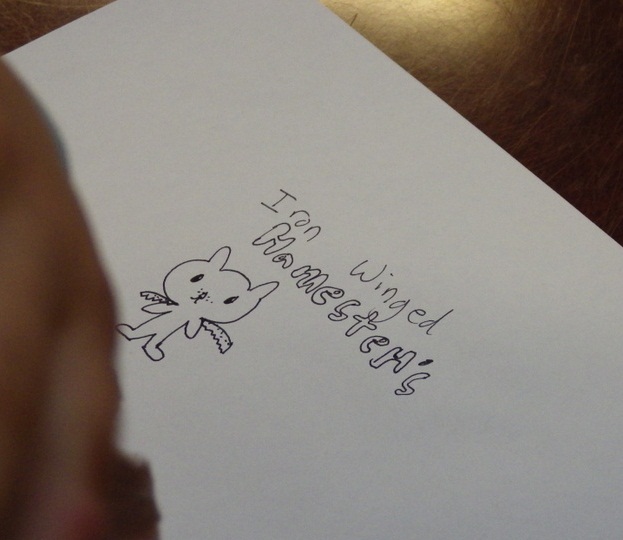 Iron Winged
Hamester's